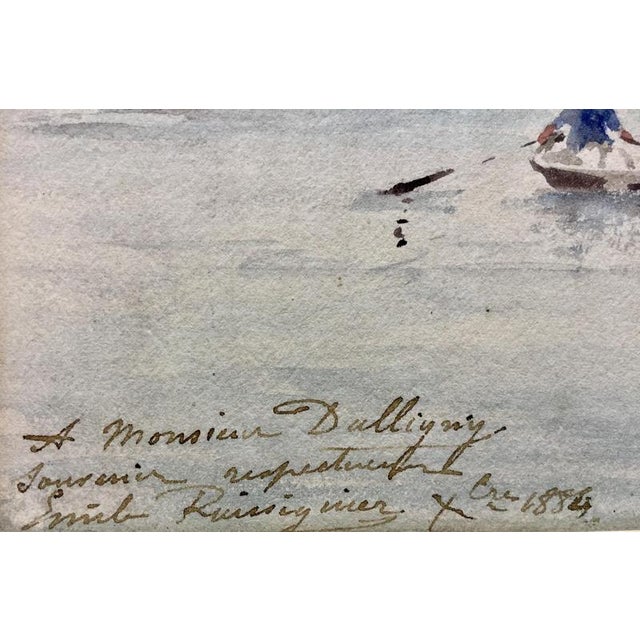 A Monsieur Dalligny.
Souvenir respectueux
Emile Rossignier. Xbre 1884